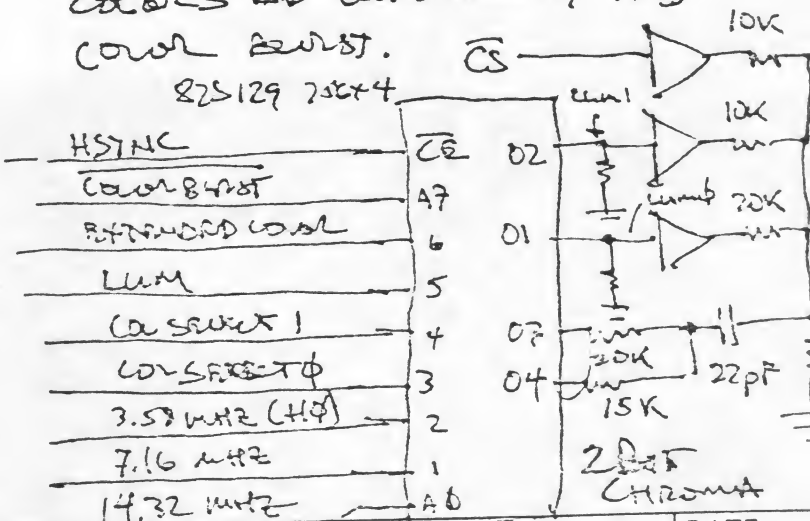 COLOR BURST.
82S129 256x4
HSYNC
COLOR BURST
EXTENDED COLOR
LUM
COL SELECT 1
COL SELECT 0
3.58 MHZ (HØ)
7.16 MHZ
14.32 MHZ
CE
A7
6
5
4
3
2
1
A0
02
01
03
04
CS
LUM 1
10K
10K
20K
20K
15K
22pF
2 BIT
CHROMA